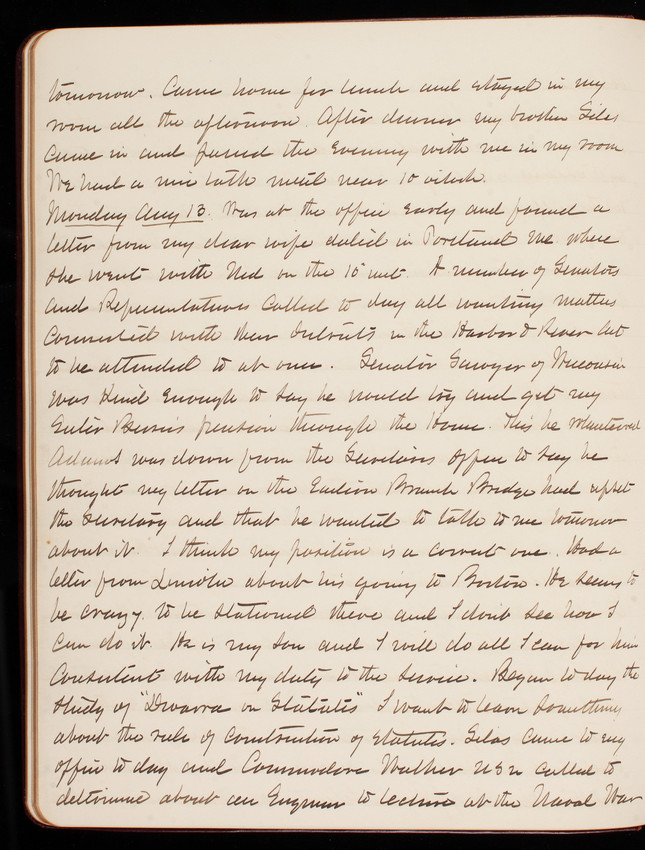 tomorrow. Came home for lunch and stayed in my
room all the afternoon. After dinner my brother Silas
came in and passed the Evening with me in my room
We had a nice talk until near 10 oclock.
Monday Aug 13. Was at the office Early and found a
letter from my dear wife dated in Portland Me. where
she went with Ned on the 10 inst. A number of Senators
and Representatives called to day all wanting matters
connected with their districts in the Harbor & River Act
to be attended to at once. Senator Sawyer of Wisconsin
was Kind Enough to say he would try and get my
Sister pension through the House. This he volunteered
Adams was down from the Secretary's office to say he
thought my letter on the Eastern Branch Bridge had upset
the Secretary and that he wanted to talk to me tomorrow
about it. I think my position is a correct one. Had a
letter from Lincoln about his going to Boston. He seems to
be crazy to be stationed there and I don't see how I
can do it. He is my son and I will do all I can for him
Consistent with my duty to the service. Began to day the
study of "Dwarris on Statutes" I want to learn something
about the rule of construction of statutes. Silas came to my
office to day and Commodore Walker USN called to
determine about an Engineer to lecture at the Naval War